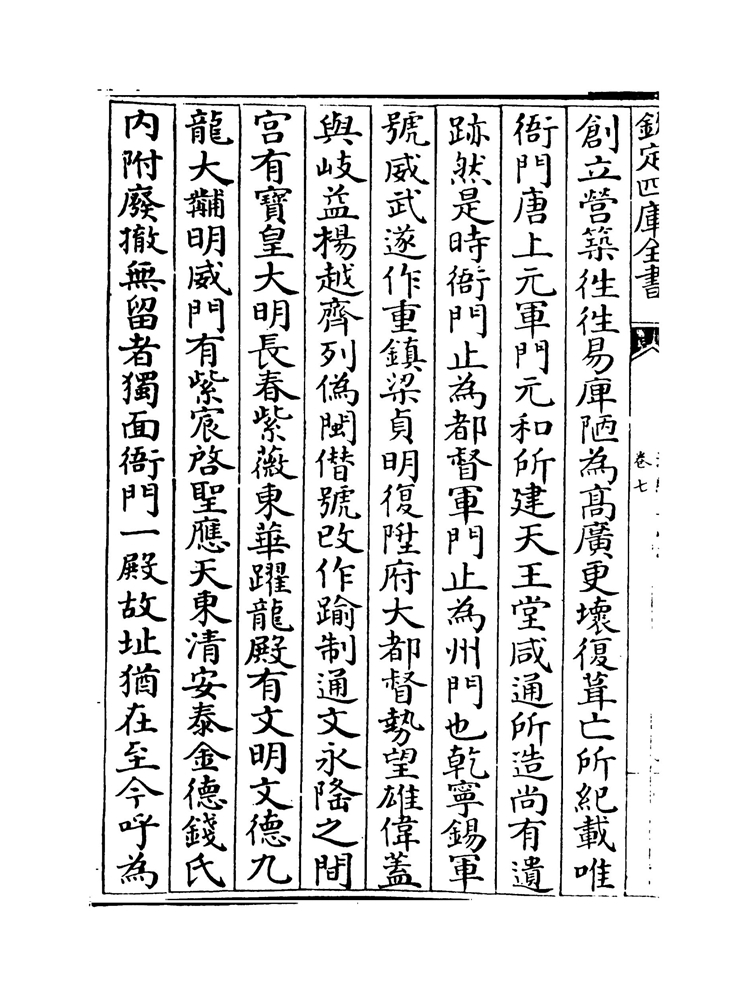 欽定四庫全書
卷七
創立營築徃徃易庳陋為髙廣更壞復葺亡所紀載唯
衙門唐上元軍門元和所建天王堂咸通所造尚有遺
跡然是時衙門止為都督軍門止為州門也乾寧錫軍
號威武遂作重鎮梁貞明復陞府大都督勢望雄偉蓋
與岐益楊越齊列偽閩僣號改作踰制通文永隆之間
宫有寶皇大明長春紫薇東華躍龍殿有文明文德九
龍大黼明威門有紫宸啓聖應天東清安泰金德錢氏
内附廢撤無留者獨面衙門一殿故址猶在至今呼為